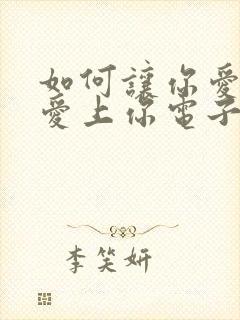 如何讓你愛
愛上你電子
李笑妍